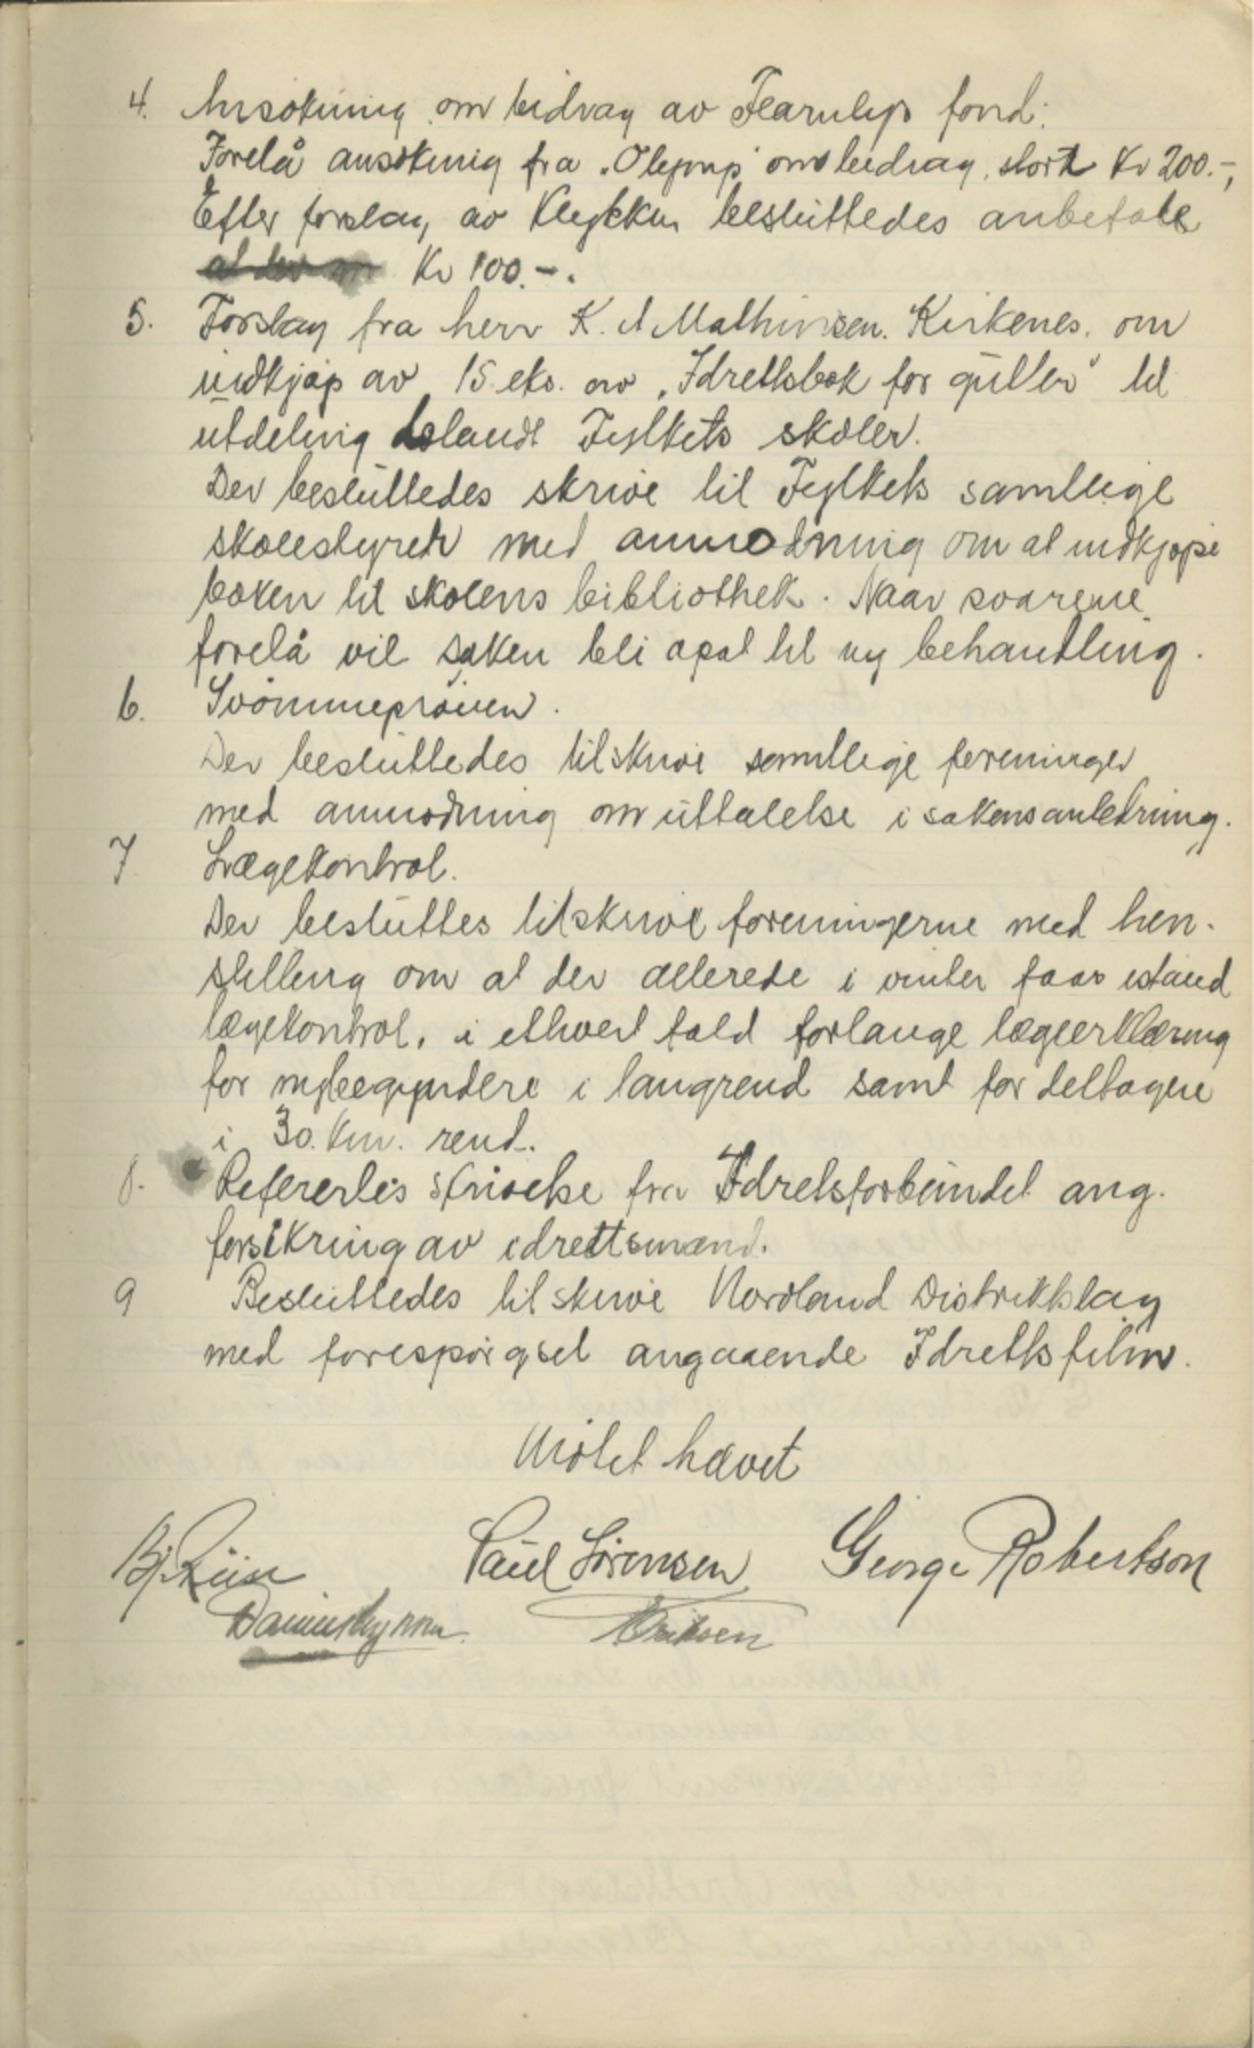 4. Ansøkning om bidrag av Fearnleys fond.
Forelå ansøkning fra "Olymp" om bidrag stort Kr 200.-,
Efter forslag av Klykken besluttedes anbefale
Kr 100.-.
5. Forslag fra herr K. A Mathinsen. Kirkenes. om
indkjøp av 15 eks. av "Idrettsbok for gutter" til
utdeling blandt Fylkets skoler.
Der besluttedes skrive til Fylkets samtlige
skolestyrer med anmodning om at indkjøpe
boken til skolens bibliothek. Naar svarene
forelå vil saken bli opat til ny behandling.
6. Svømmeprøven.
Der besluttedes tilskrive samtlige foreninger
med anmodning om uttalelse i sakens anledning.
7 Lægekontrol.
Der besluttes tilskrive foreningerne med hen-
stilling om at der allerede i vinter faas istand
lægekontrol, i ethvert fald forlange lægeerklæring
for nybegyndere i langrend samt for deltagere
i 30. km. rend.
8. Refererles skrivelse fra Idretsforbundet ang.
forsikring av idrettsmænd.
9 Besluttedes tilskrive Nordland Distriktslag
med forespørgsel angaaende Idrettsfilm.
Møtet hævet
Paul Sørensen George Robertson
Eriksen